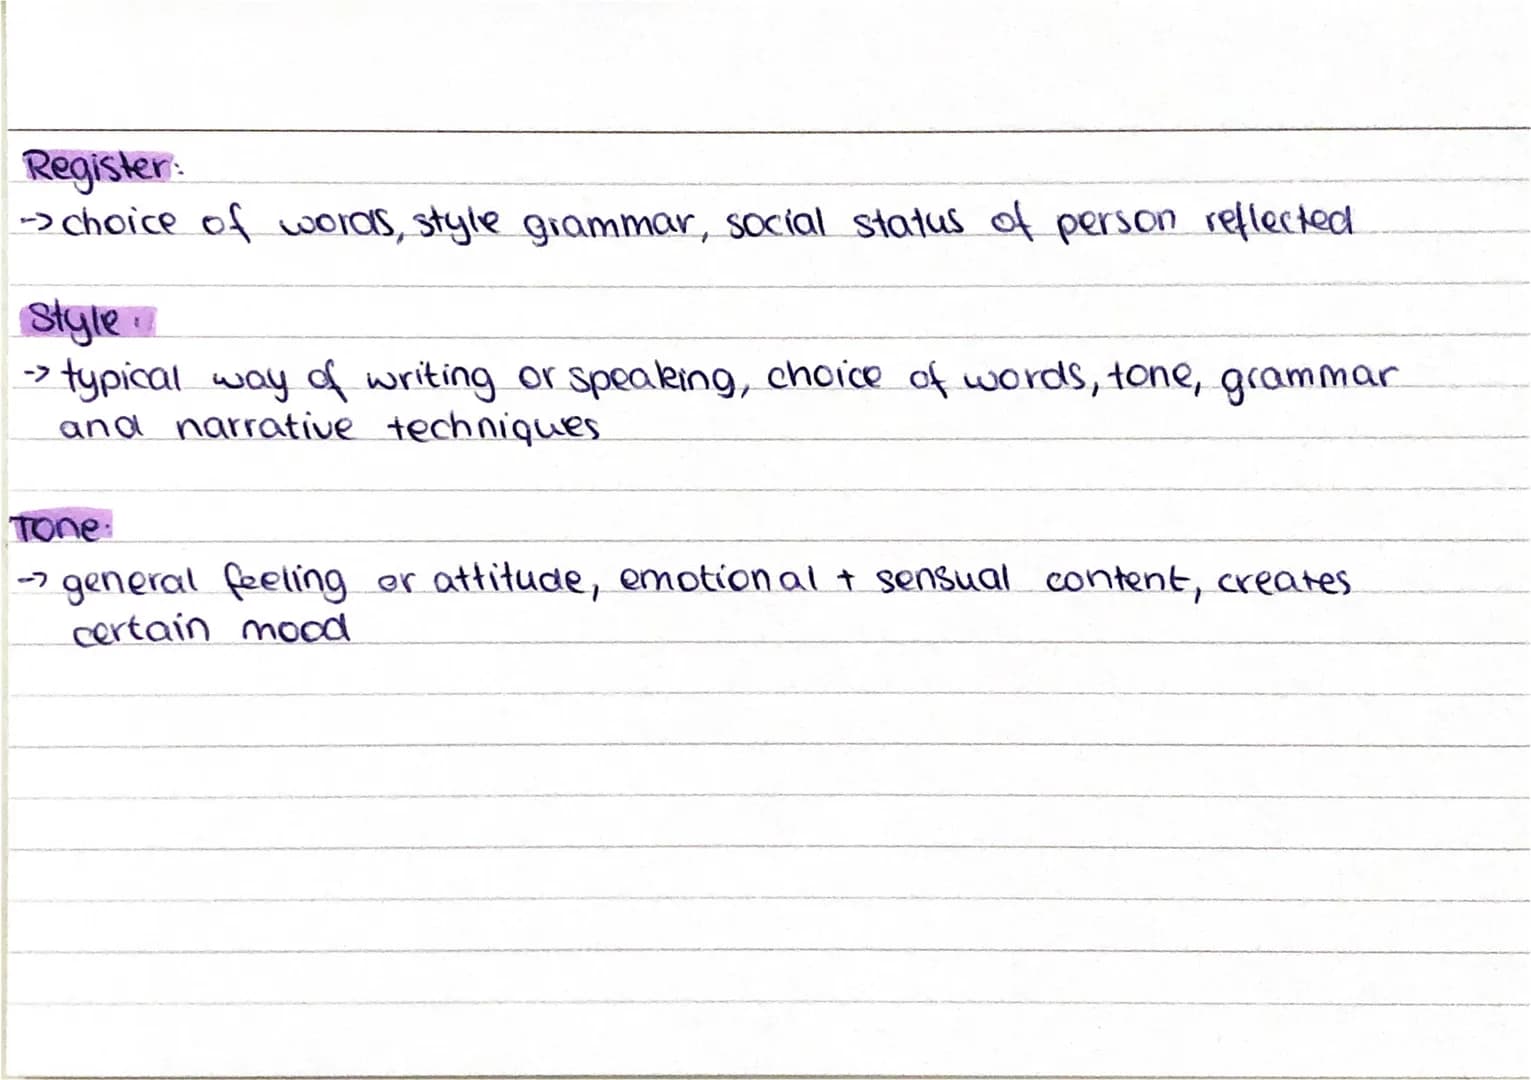 Register:
→ choice of words, style grammar, social status of person reflected
Style:
→ typical way of writing or speaking, choice of words, tone, grammar
and narrative techniques
Tone:
→ general feeling or attitude, emotional + sensual content, creates
certain mood